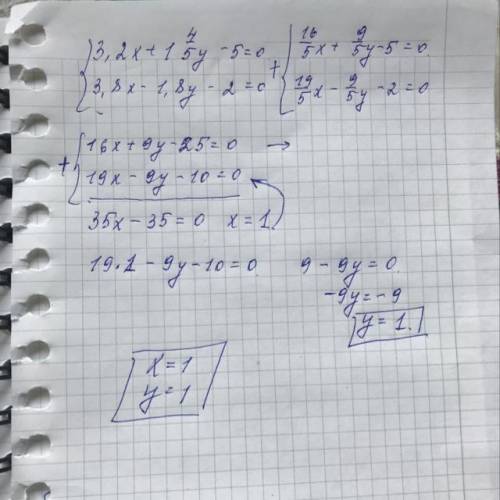 { 3,2x + 1 4/5 y - 5 = 0
3,8x - 1,8y - 2 = 0
+ { 16/5 x + 9/5 y - 5 = 0
19/5 x - 9/5 y - 2 = 0
+ { 16x + 9y - 25 = 0 →
19x - 9y - 10 = 0
35x - 35 = 0 x = 1
19·1 - 9y - 10 = 0
9 - 9y = 0
-9y = -9
y = 1.
x = 1
y = 1